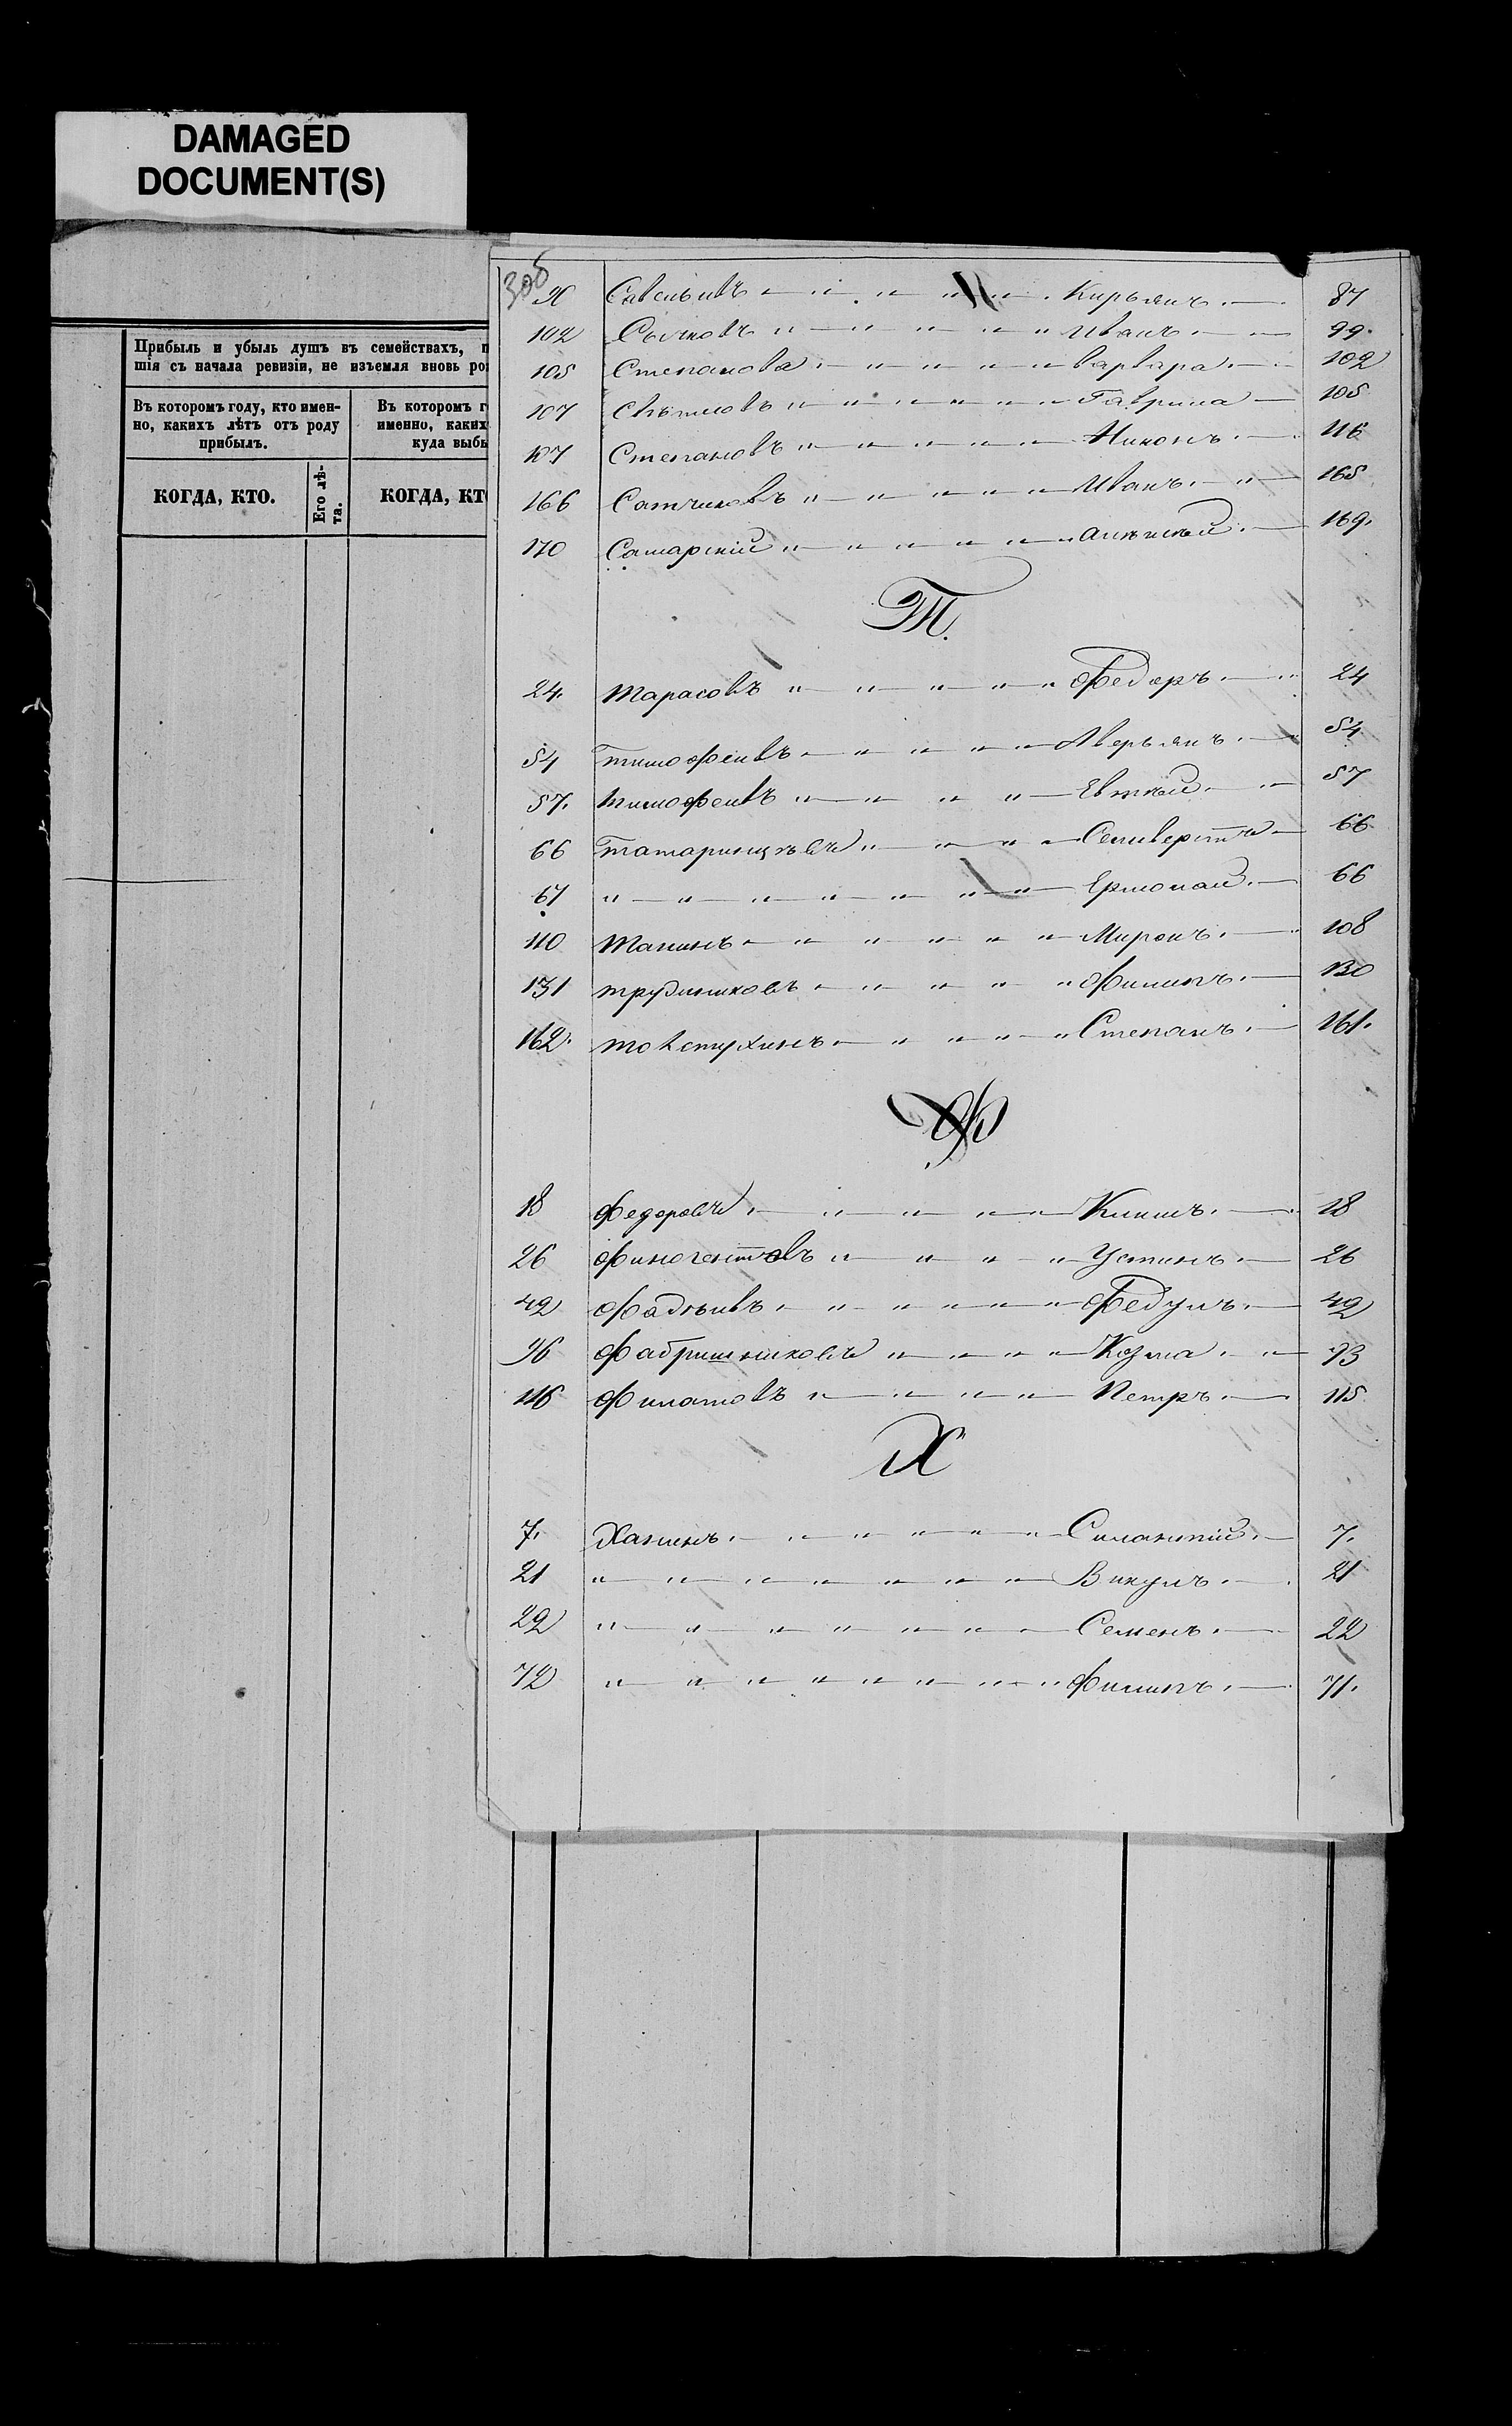 DAMAGED
DOCUMENT(S)
Прибыль и убыль душъ въ семействахъ,
шія съ начала ревизіи, не изъемля вновь
Въ которомъ году, кто имен-
но, какихъ лѣтъ отъ роду
прибылъ.
Въ которомъ
именно, какихъ
куда
КОГДА, КТО.
Его лѣ-
та.
КОГДА,
306
90 Савельивъ " " " " Кирьянъ. 87
102 Сычковъ " " " " " Иванъ. 99.
105 Степанова " " " " " варвара. 102
107 " " " " " " Гаврила 105
Степановъ " " " " " Никонъ. 116
166 Сатчиковъ " " " " " Иванъ. 165
170 Самарскій " " " " " 169.
Т.
24. тарасовъ " " " " " Федоръ. 24
54 тимофеивъ " " " " Аверьянъ. 54
57. тимофеивъ " " " " Евтѣй 57
66 татаринцъвъ " " " " Селиверстъ 66
67 " " " " " " " Ермолай. 66
110 танинъ " " " " " Миронъ. 108
131 трудниковъ " " " " " Филипъ. 130
162. толстухинъ " " " " Степанъ. 161.
Ф
18 Федоровъ " " " " Климъ. 18
26 Финогентовъ " " " " Устинъ. 26
42 Фадѣивъ " " " " " Федулъ. 42
96 Фабришниковъ " " " " Козма. 93
116 Филатовъ " " " " Петръ. 115
Х
7. Ханинъ. " " " " " Силантій. 7.
21 " " " " " " " Викулъ. 21
22 " " " " " " " Семенъ. 22
72 " " " " " " " Филипъ. 71.